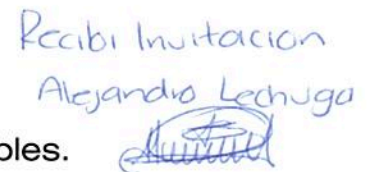 Recibi Invitacion
Alejandro Lechuga
oles.